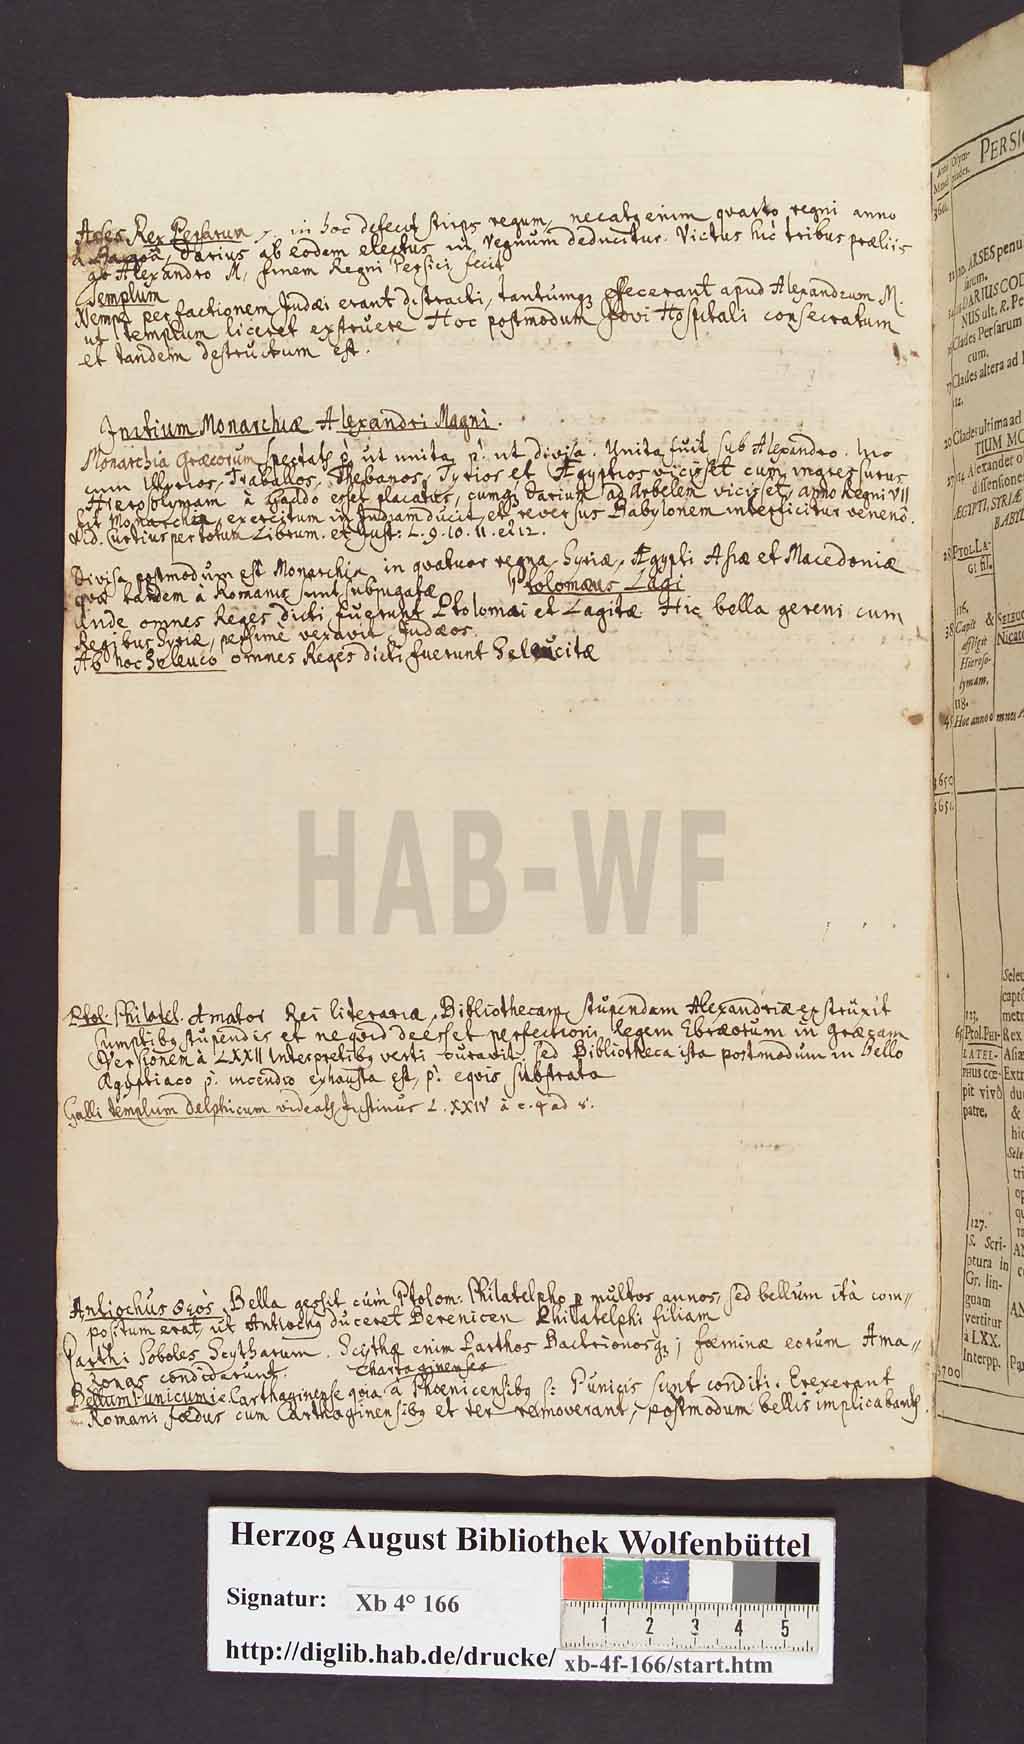 Arses Rex Persarum, in hoc defecit stirps regum, necatq enim quarto regni anno
à Bagoa, Darius ab eodem electus in regnum deducitur. Victus hic tribus præliis
ab Alexandro M, finem Regni Persici fecit
Templum
perfactionem Judæi erant distracti, tantumq effecerant apud Alexandrum M.
ut templum liceret exstruere Hoc postmodum Jovi Hospitali consecratum
et tandem destructum est.
Initium Monarchiæ Alexandri Magni.
Monarchia Græcorum spectatr ut unita ut divisa. Unita fuit sub Alexandro.
cum Illyrios, Traballos, Thebanos, Tyrios et Ægyptios vicisset cumq ingressurus
Hierosolymam à Gaddo esset placatus, cumq Darium ad Arbelam vicisset, anno Regni VII
fit Monarcha, exercitum in Indiam ducit et reversus Babylonem interficitur veneno.
Vid. Curtius per totum Librum. et Just: L. 9. 10. 11. et 12.
Divisa postmodum est Monarchia in quatuor regna, Syriæ, Ægypti Asiæ et Macedoniæ
quæ tandem à Romanis sunt subjugatæ
Ptolomæus Lagi
Unde omnes Reges dicti fuerunt Ptolomæi et Lagitæ Hic bella gerens cum
Regibus Syriæ, pessime vexavit Judæos.
Ab hoc Seleuco omnes Reges dicti fuerunt Seleucitæ
HAB-WF
Ptol. Philatel. Amator Rei literariæ, Bibliothecam stupendam Alexandriæ exstruxit
sumptibq stupendis et ne quid deesset perfectioni, legem Ebræorum in Græcam
Versionem à LXXII Interpretibq verti curavit, sed Bibliotheca ista postmodum in Bello
Ægyptiaco incendio exhausta est, equis substrata
Galli templum Delphicum videatr Justinus L. XXIV à c. 4 ad 8.
Antiochus Θεὸς, Bella gessit cum Ptolom: Philatelpho p multos annos, sed bellum ità com-
positum erat, ut Antiochq duceret Berenicen Philatelphi filiam
Parthi Soboles Scytharum. Scythæ enim Parthos Bactrianosq; fœminæ eorum Ama-
zonas condiderunt.
Chartaginenses
Bellum Punicum i.e. Carthaginense quia à Phœnicensibq s: Punicis sunt conditi. Erexerant
Romani fœdus cum Carthaginensibq et ter removerant, postmodum bellis implicabantr.
PERSI
Anni Mundi
Olympiades.
360
ARSES penu
DARIUS COD
NUS ult. R. Pe
Clades Persarum
cum.
Clades altera ad I
Clades ultima ad
TIUM MO
Alexander o
dissensiones
ÆGIPTI, SYRIÆ
BABYL
PTOL. LA-
GI fil.
116.
Capit &
affligit
Hieroso-
lymam.
118.
Hoc anno omnes
SELEUC
Nicato
3650
3651
125.
Ptol. PHI-
LATEL-
PHUS cœ-
pit vivo
patre.
127.
S. Scri-
ptura in
Gr. lin-
guam
vertitur
à LXX.
Interpp.
3700
Herzog August Bibliothek Wolfenbüttel
Signatur: Xb 4° 166
1 2 3 4 5
http://diglib.hab.de/drucke/ xb-4f-166/start.htm